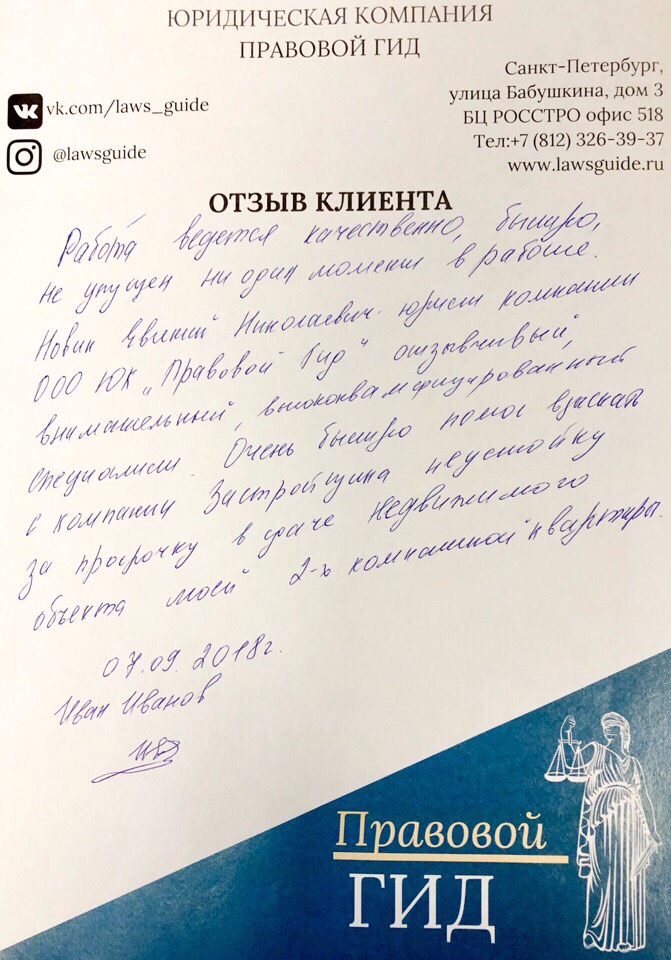 ЮРИДИЧЕСКАЯ КОМПАНИЯ
ПРАВОВОЙ ГИД
Санкт-Петербург,
улица Бабушкина, дом 3
БЦ РОССТРО офис 518
Тел:+7 (812) 326-39-37
www.lawsguide.ru
vk.com/laws_guide
@lawsguide
ОТЗЫВ КЛИЕНТА
Работа ведется качественно, быстро,
не упущен ни один момент в работе.
Новик Евгений Николаевич - юрист компании
ООО ЮК „Правовой Гид" отзывчивый,
внимательный, высококвалифицированный
специалист. Очень быстро помог взыскать
с компании Застройщика неустойку
за просрочку в сдаче Недвижимого
объекта моей 2-х комнатной квартиры.
07.09.2018г.
Иван Иванов
Правовой
ГИД